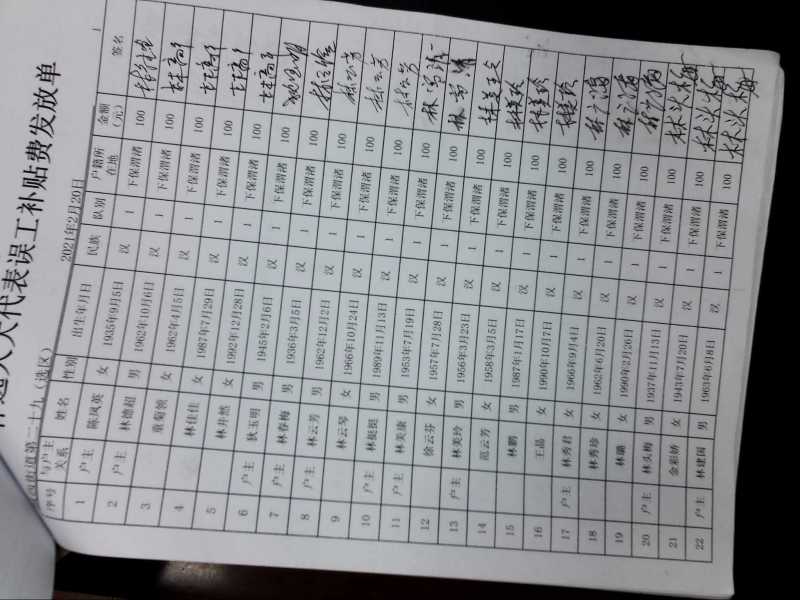 选人大代表误工补贴费发放单
街道第二十九（选区） 2021年2月20日
序号 与户主关系 姓名 性别 出生年月日 民族 队别 户籍所在地 金额（元） 签名
1 户主 陈凤英 女 1935年9月5日 汉 1 下保渭渚 100
2 户主 林德超 男 1963年10月6日 汉 1 下保渭渚 100
3 童菊领 女 1962年4月5日 汉 1 下保渭渚 100
4 林佳佳 女 1987年7月29日 汉 1 下保渭渚 100
5 林井然 女 1992年12月28日 汉 1 下保渭渚 100
6 户主 狄玉明 男 1945年2月6日 汉 1 下保渭渚 100
7 户主 林春梅 男 1936年3月5日 汉 1 下保渭渚 100
8 户主 林云芳 男 1962年12月2日 汉 1 下保渭渚 100 林云芳
9 林云琴 女 1966年10月24日 汉 1 下保渭渚 100 林云芳
10 户主 林挺挺 男 1989年11月13日 汉 1 下保渭渚 100 林云芳
11 户主 林美康 男 1953年7月19日 汉 1 下保渭渚 100
12 徐云芬 女 1957年7月28日 汉 1 下保渭渚 100
13 户主 林美玲 男 1956年3月23日 汉 1 下保渭渚 100
14 范云芳 女 1958年3月5日 汉 1 下保渭渚 100
15 林鹏 男 1987年1月17日 汉 1 下保渭渚 100
16 王晶 女 1990年10月7日 汉 1 下保渭渚 100
17 户主 林秀君 女 1966年9月4日 汉 1 下保渭渚 100
18 林秀珍 女 1962年6月20日 汉 1 下保渭渚 100
19 林璐 女 1990年2月26日 汉 1 下保渭渚 100
20 户主 林头梅 男 1937年11月13日 汉 1 下保渭渚 100 林头梅
21 金彩娇 女 1943年7月20日 汉 1 下保渭渚 100 林头梅
22 户主 林建国 男 1963年6月8日 汉 1 下保渭渚 100 林头梅